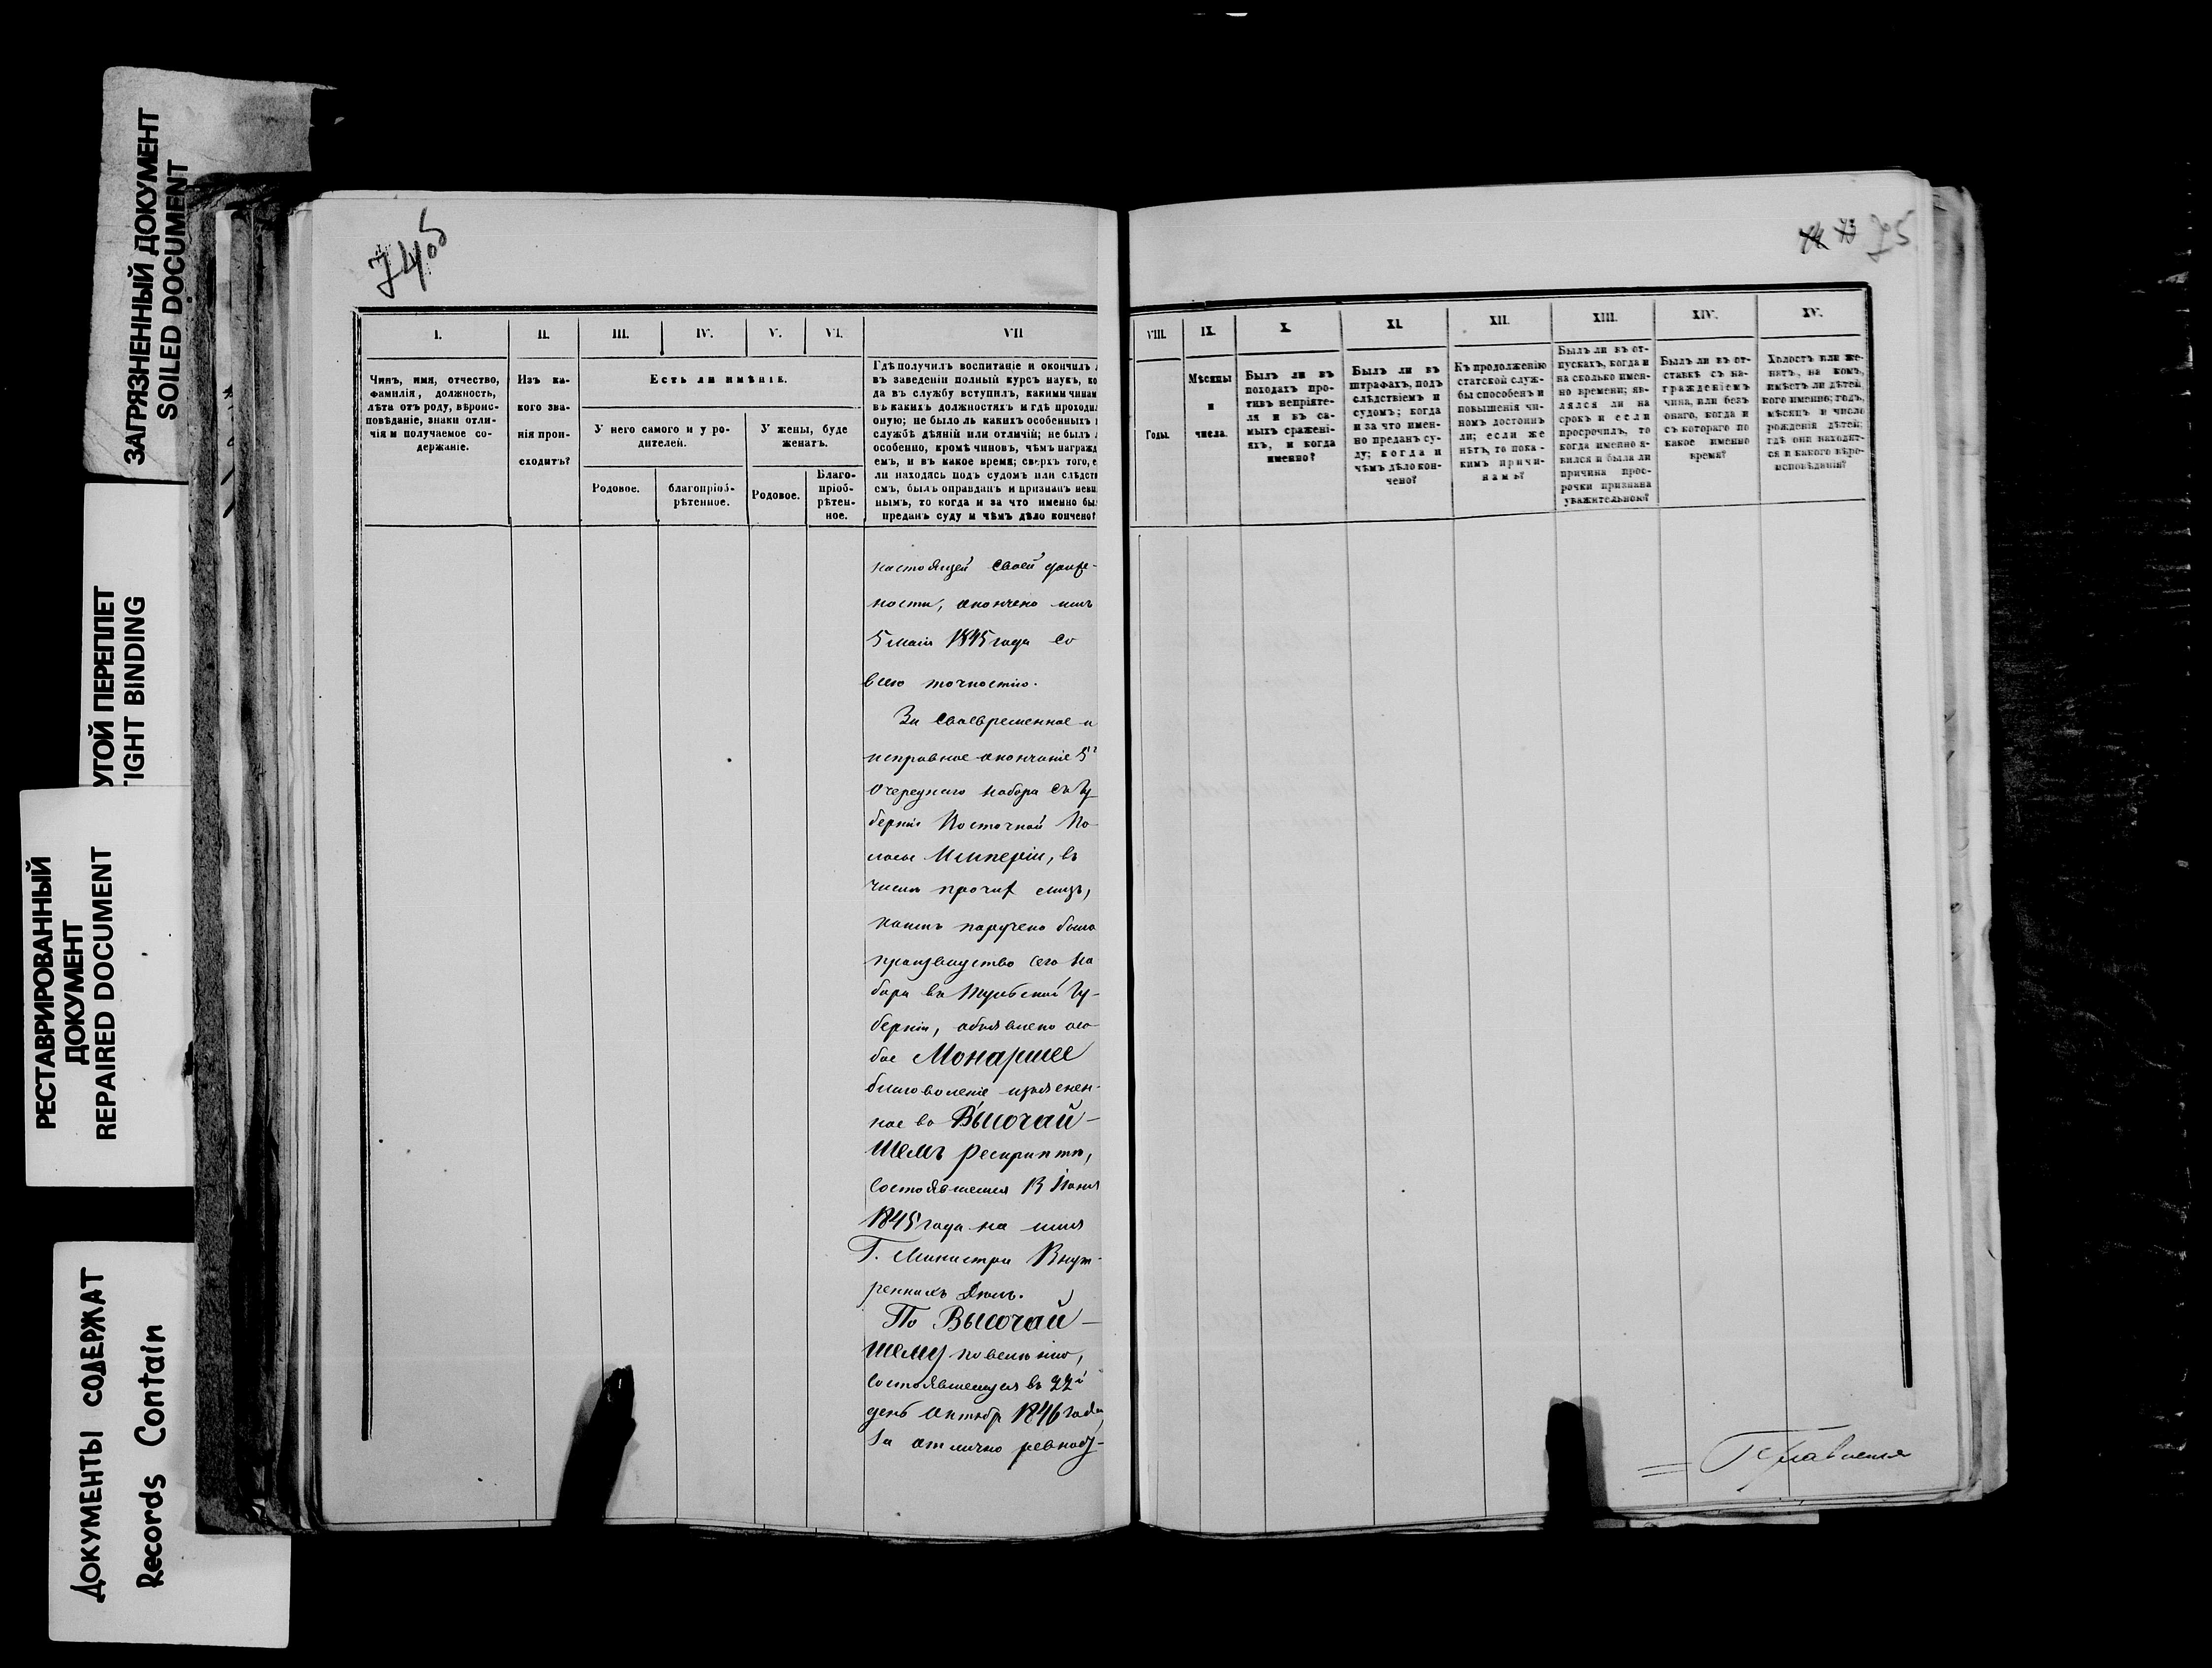 ЗАГРЯЗНЕННЫЙ ДОКУМЕНТ
SOILED DOCUMENT
УГОЙ ПЕРЕПЛЕТ
TIGHT BINDING
РЕСТАВРИРОВАННЫЙ
ДОКУМЕНТ
REPAIRED DOCUMENT
ДОКУМЕНТЫ СОДЕРЖАТ
Records Contain
74об
I.
Чинъ, имя, отчество,
фамилія, должность,
лѣта отъ роду, вѣроис-
повѣданіе, знаки отли-
чія и получаемое со-
держаніе.
II.
Изъ ка-
кого зва-
нія прои-
сходитъ?
III. IV. V. VI.
Есть ли имѣніе.
У него самого и у ро-
дителей.
У жены, буде
женатъ.
Родовое.
благопріоб-
рѣтенное.
Родовое.
Благо-
пріоб-
рѣтен-
ное.
VII
Гдѣ получилъ воспитаніе и окончилъ л
въ заведеніи полный курсъ наукъ, ко
да въ службу вступилъ, какими чинам
въ какихъ должностяхъ и гдѣ проходил
оную; не было ль какихъ особенныхъ п
службѣ дѣяній или отличій; не былъ л
особенно, кромѣ чиновъ, чѣмъ награжд
емъ, и въ какое время; сверхъ того, е
ли находясь подъ судомъ или слѣдств
емъ, былъ оправданъ и признанъ неви
нымъ, то когда и за что именно бы
преданъ суду и чѣмъ дѣло кончено?
настоящей своей долж-
ности, окончено имъ
5 маія 1845 года со
всею точностію.
За своевременное и
исправное окончаніе 5г
очереднаго набора съ Гу
берній Восточной По-
лосы Имперіи, въ
числѣ прочих лицъ,
коимъ поручено было
производство сего на
бора въ Тульской Гу-
берніи, объявлено осо-
бое Монаршее
благоволеніе изъяснен-
ное въ Высочай-
шемъ рескриптѣ,
состоявшемся 13 Іюня
1845 года на имя
Г. Министра Внут-
реннихъ Дѣлъ.
По Высочай-
шему повелѣнію,
состоявшемуся въ 22й
день Октябр 1846 года,
за отлично ревност-
74 73 75
VIII.
Годы.
IX.
Мѣсяцы
и
числа.
X.
Былъ ли въ
походахъ про-
тивъ непріяте-
ля и въ са-
мыхъ сражені-
яхъ, и когда
именно?
XI.
Былъ ли въ
штрафахъ, подъ
слѣдствіемъ и
судомъ; когда
и за что имен-
но преданъ су-
ду; когда и
чѣмъ дѣло кон-
чено?
XII.
Къ продолженію
статской служ-
бы способенъ и
повышенія чи-
номъ достоинъ
ли; если же
нѣтъ, то пока-
кимъ причи-
намъ?
XIII.
Былъ ли въ от-
пускахъ, когда и
на сколько имен-
но времени; яв-
лялся ли на
срокъ и если
просрочилъ, то
когда именно я-
вился и была ли
причина прос-
рочки признана
уважительною?
XIV.
Былъ ли въ от-
ставкѣ съ на-
гражденіемъ
чина, или безъ
онаго, когда и
съ котораго по
какое именно
время?
XV.
Холостъ или же-
натъ, на комъ,
имѣетъ ли дѣтей,
кого именно; годъ,
мѣсяцъ и число
рожденія дѣтей;
гдѣ они находят-
ся и какого вѣро-
исповѣданія?